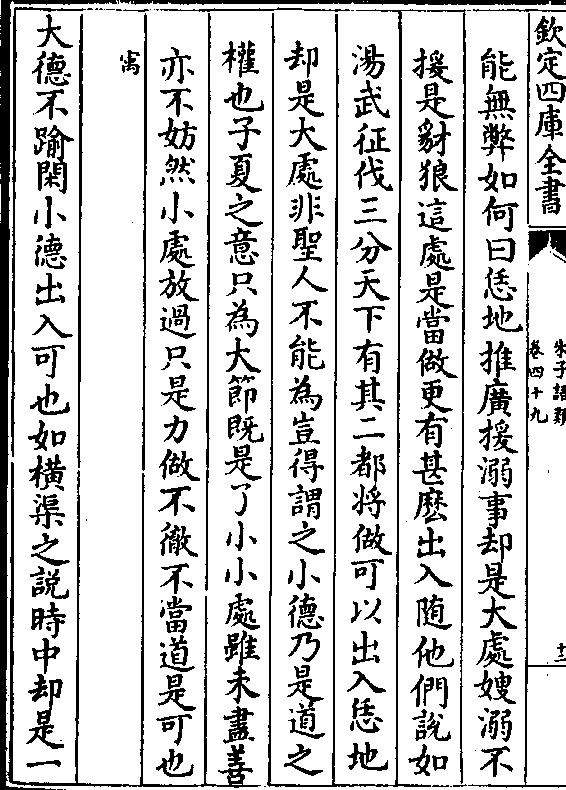 欽定四庫全書
朱子語類
卷四十九
十二
能無弊如何曰恁地推廣援溺事却是大處嫂溺不
援是豺狼這處是當做更有甚麽出入随他們說如
湯武征伐三分天下有其二都將做可以出入恁地
却是大處非聖人不能為豈得謂之小德乃是道之
權也子夏之意只為大節既是了小小處雖未盡善
亦不妨然小處放過只是力做不徹不當道是可也
㝢
大德不踰閑小德出入可也如橫渠之說時中却是一